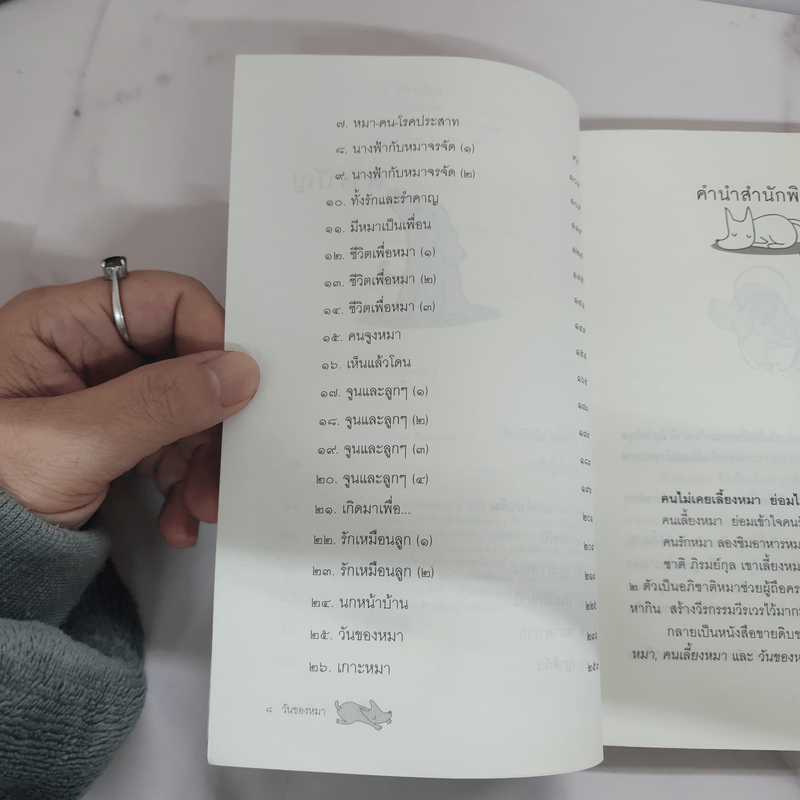 ๗. หมา-คน-โรคประสาท
๘. นางฟ้ากับหมาจรจัด (๑)
๙. นางฟ้ากับหมาจรจัด (๒)
๑๐. ทั้งรักและรำคาญ
๑๑. มีหมาเป็นเพื่อน
๑๒. ชีวิตเพื่อหมา (๑)
๑๓. ชีวิตเพื่อหมา (๒)
๑๔. ชีวิตเพื่อหมา (๓)
๑๕. คนจูงหมา
๑๖. เห็นแล้วโดน
๑๗. จูนและลูกๆ (๑)
๑๘. จูนและลูกๆ (๒)
๑๙. จูนและลูกๆ (๓)
๒๐. จูนและลูกๆ (๔)
๒๑. เกิดมาเพื่อ...
๒๒. รักเหมือนลูก (๑)
๒๓. รักเหมือนลูก (๒)
๒๔. นกหน้าบ้าน
๒๕. วันของหมา
๒๖. เกาะหมา
๘ วันของหมา
คำนำสำนักพิ
คนไม่เคยเลี้ยงหมา ย่อมไ
คนเลี้ยงหมา ย่อมเข้าใจคนร
คนรักหมา ลองชิมอาหารหม
ชาติ ภิรมย์กุล เขาเลี้ยงหม
๒ ตัวเป็นอภิชาติหมาช่วยผู้ถือคร
หากิน สร้างวีรกรรมวีรเวรไว้มาก
กลายเป็นหนังสือขายดิบข
หมา, คนเลี้ยงหมา และ วันของห